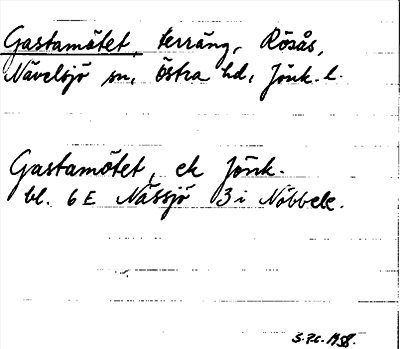 Gastamötet, terräng, Rösås,
Nävelsjö sn, östra hd, Jönk. l.
Gastamötet, ek Jönk.
bl. 6 E Nässjö 3 i Nöbbele.
1958.